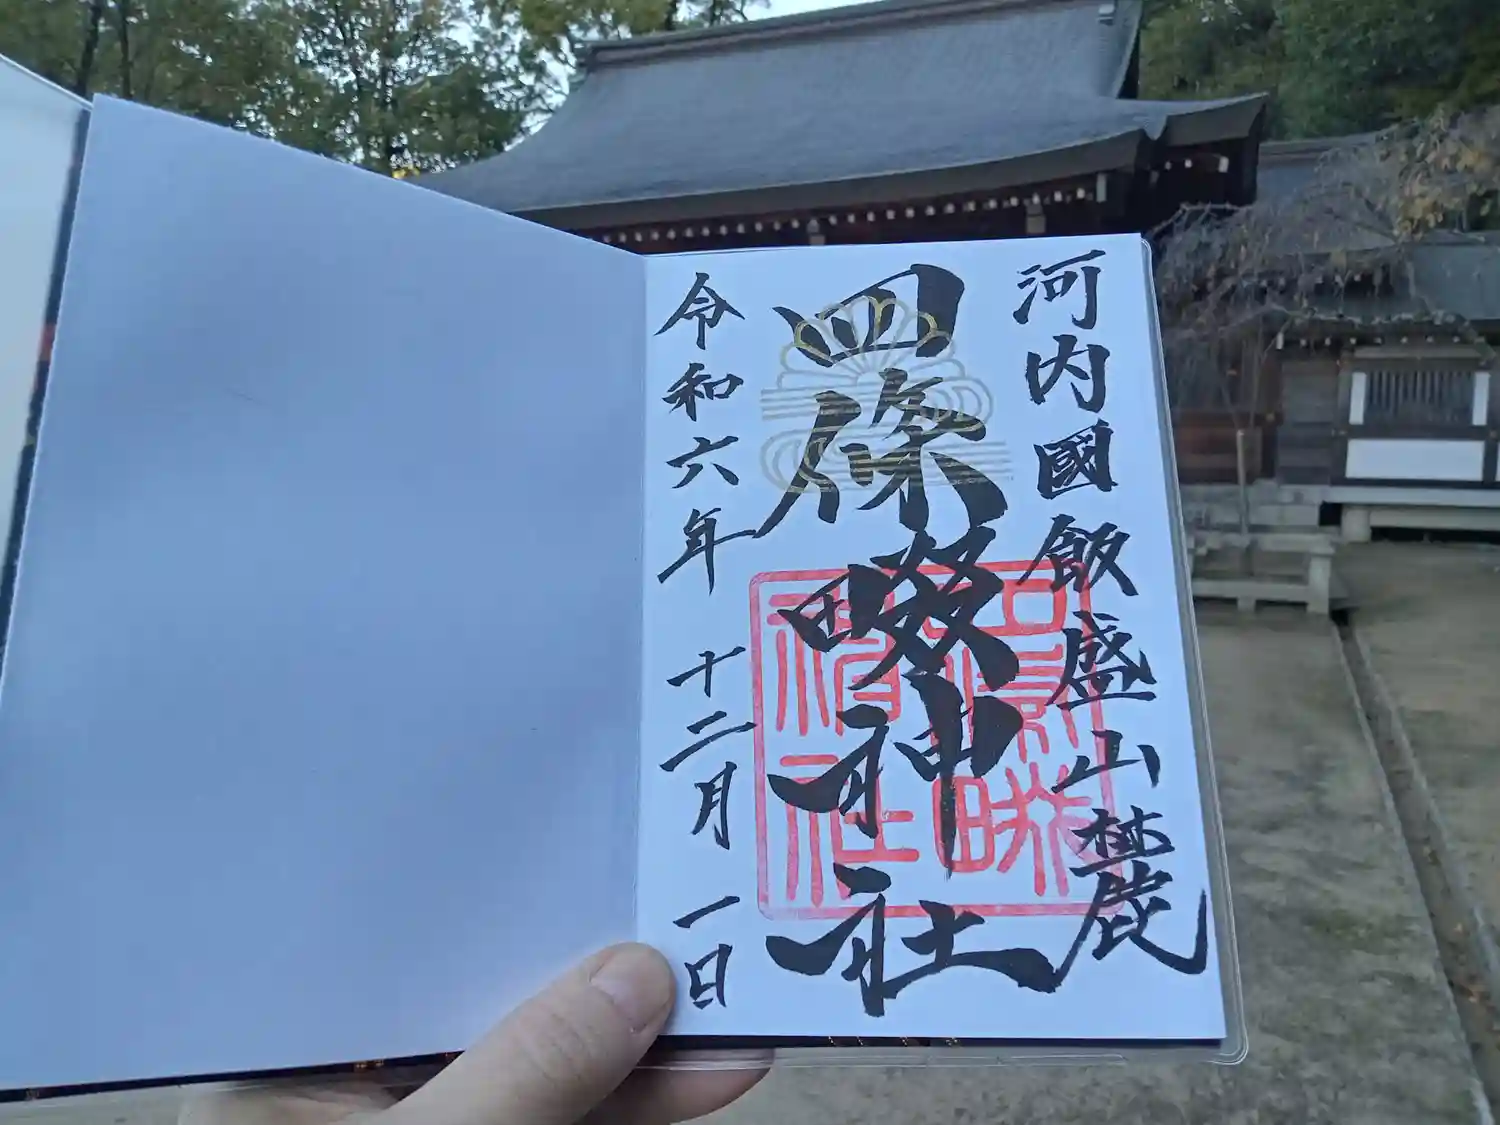 河内國飯盛山麓
四條畷神社
令和六年 十二月 一日